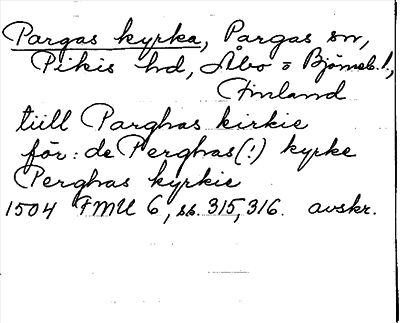 Pargas kyrka, Pargas sn,
Pikis hd, Åbo = Björneb. l.,
Finland
tiill Parghas kirkie
för: de Perghas (!) kyrke
Perghas kyrkie
1504 FMU 6, ss. 315, 316. avskr.